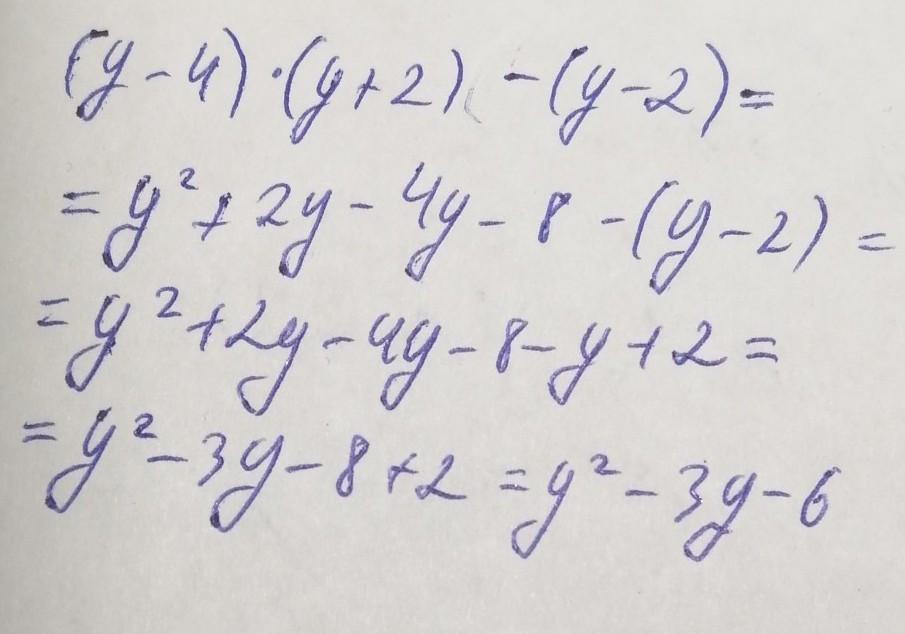 (y-4)·(y+2) -(y-2)=
=y²+2y-4y-8-(y-2)=
=y²+2y-4y-8-y+2=
=y²-3y-8+2=y²-3y-6